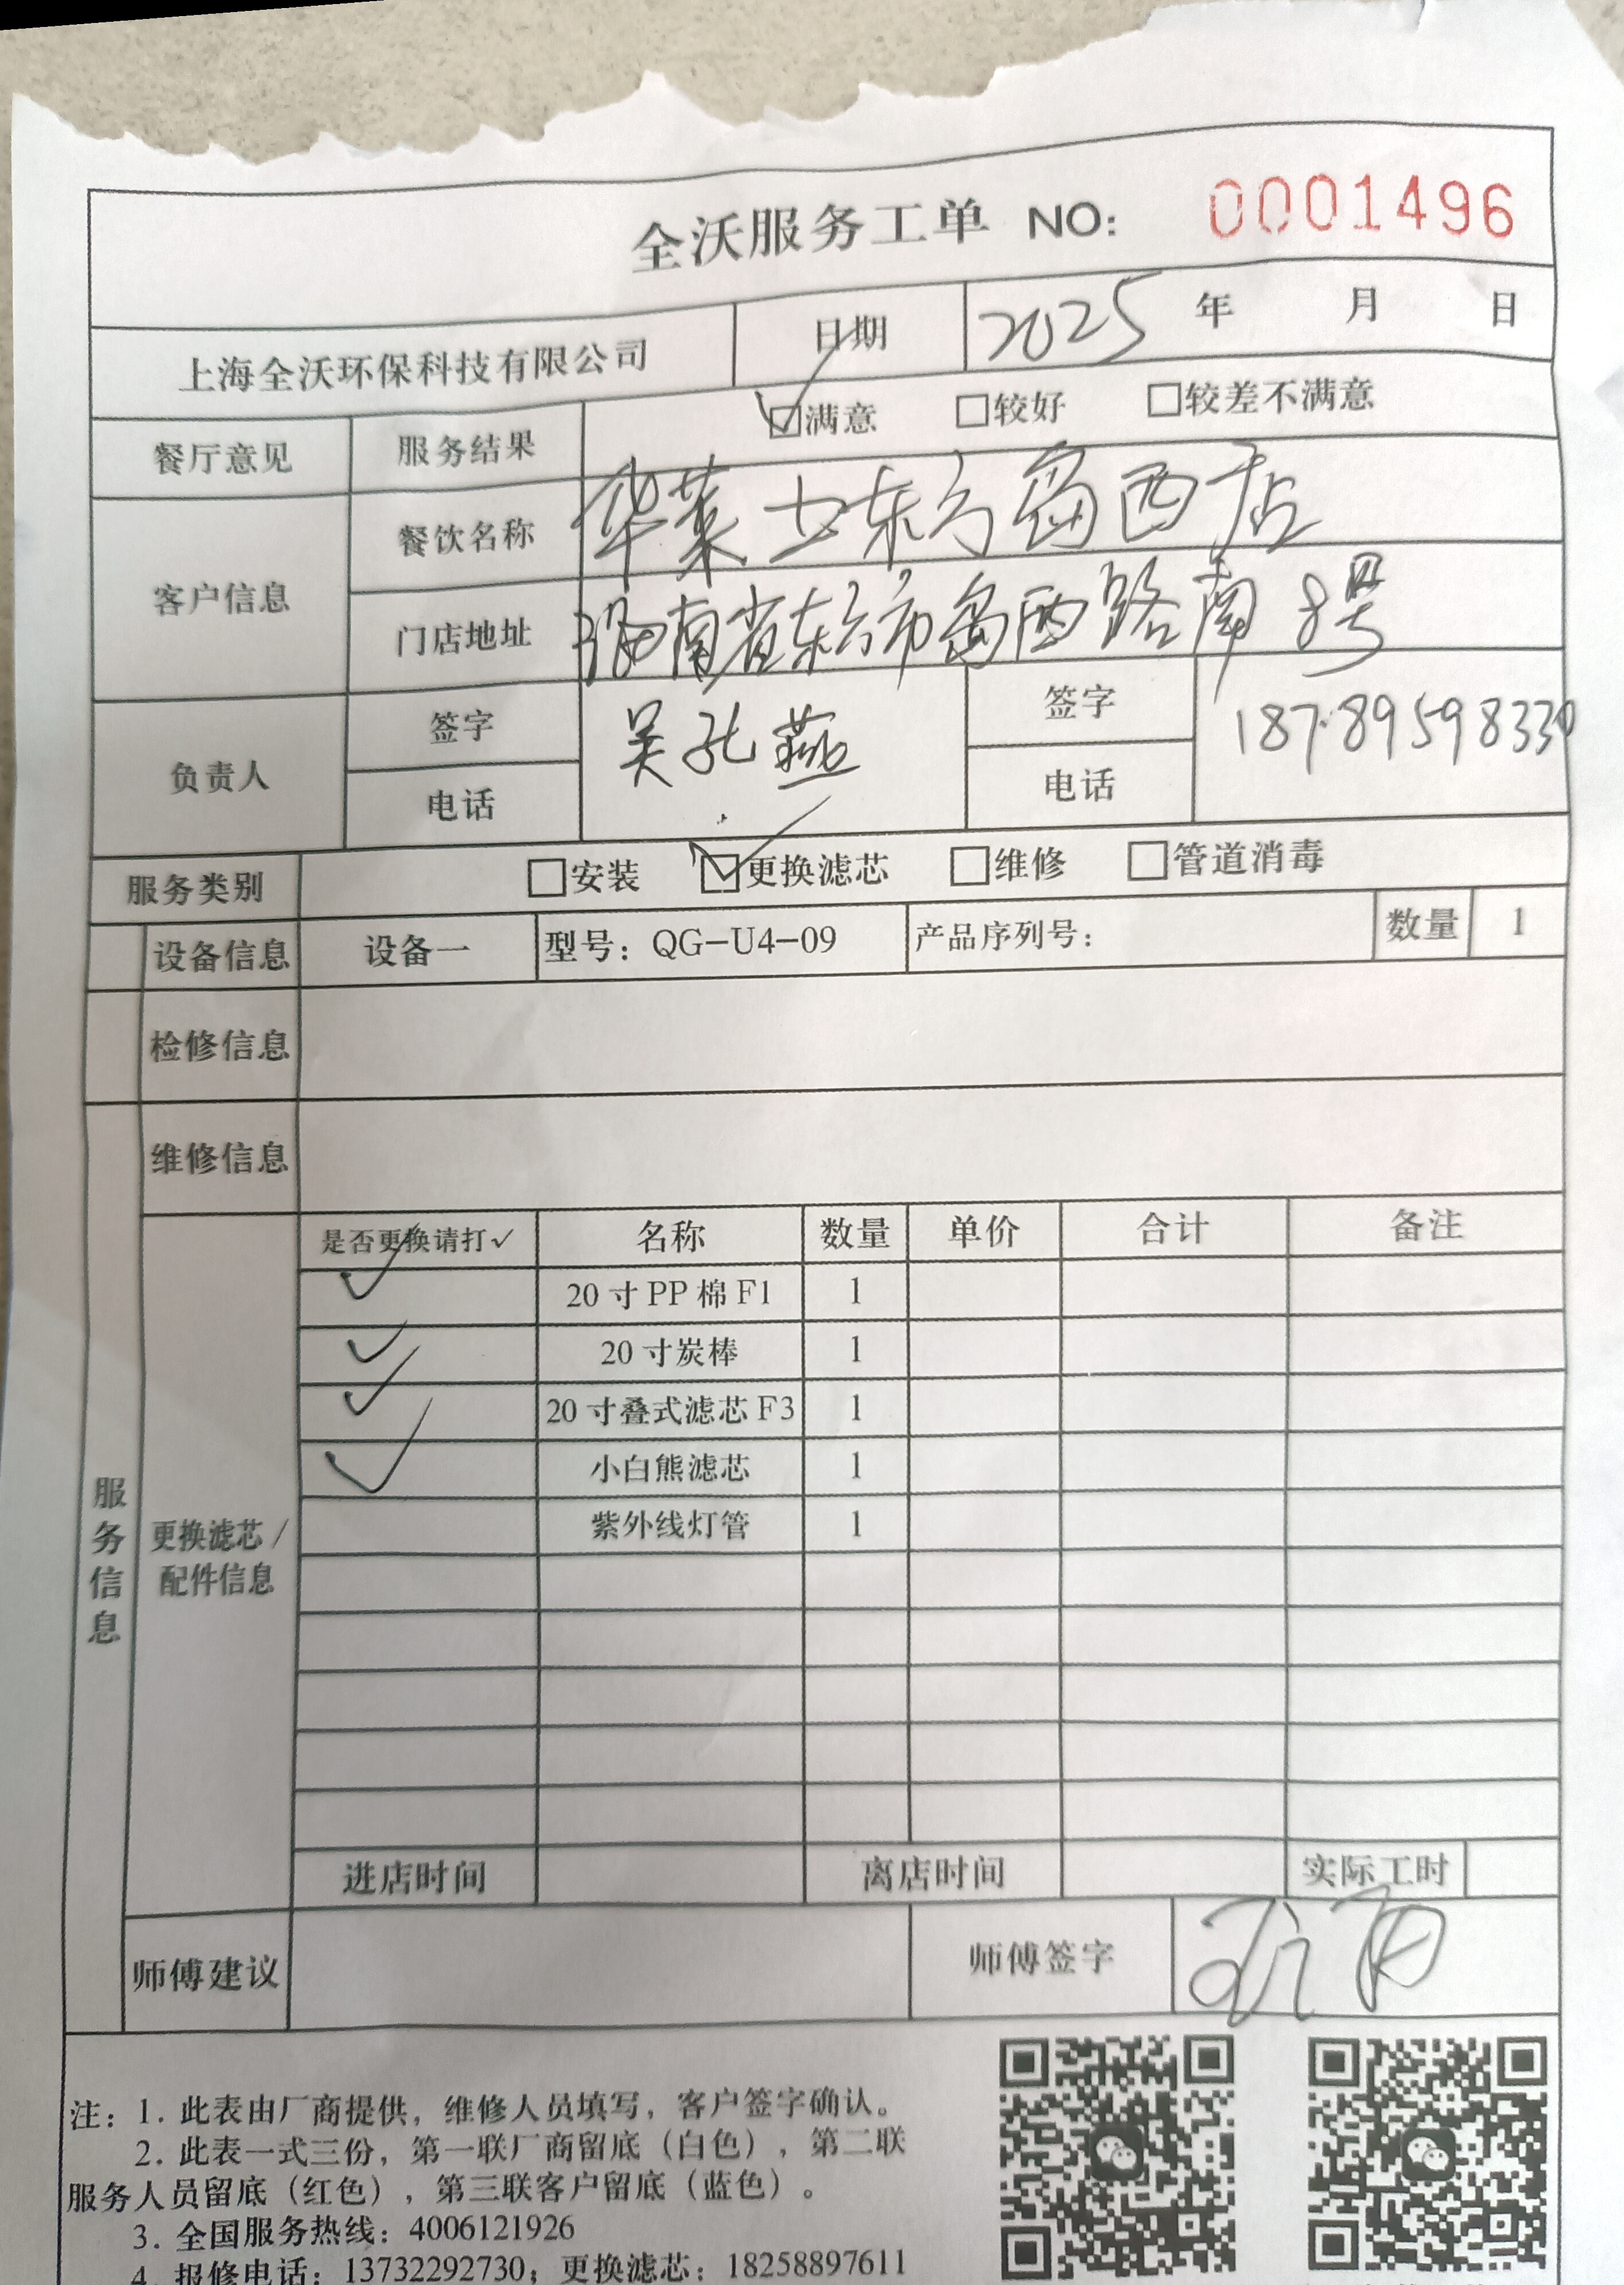 全沃服务工单 NO: 0001496
上海全沃环保科技有限公司 日期 2025 年 月 日
餐厅意见 服务结果 ☑满意 □较好 □较差不满意
客户信息 餐饮名称 华莱士东方岛西店
门店地址 海南省东方市岛西路南8号
负责人 签字 吴孔燕 签字 18789598330
电话 电话
服务类别 □安装 ☑更换滤芯 □维修 □管道消毒
设备信息 设备一 型号：QG-U4-09 产品序列号： 数量 1
检修信息
维修信息
服务信息
更换滤芯/配件信息
是否更换请打✓ 名称 数量 单价 合计 备注
✓ 20寸PP棉F1 1
✓ 20寸炭棒 1
✓ 20寸叠式滤芯F3 1
✓ 小白熊滤芯 1
紫外线灯管 1
进店时间 离店时间 实际工时
师傅建议 师傅签字
注：1. 此表由厂商提供，维修人员填写，客户签字确认。
2. 此表一式三份，第一联厂商留底（白色），第二联
服务人员留底（红色），第三联客户留底（蓝色）。
3. 全国服务热线：4006121926
4. 报修电话：13732292730；更换滤芯：18258897611